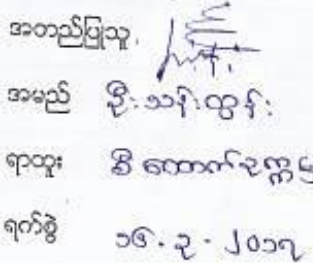 အတည်ပြုသူ
အမည် ဦးသန်းထွန်း
ရာထူး စီ ထောက်ဥက္ကဋ္ဌ
ရက်စွဲ ၁၆.၃.၂၀၁၇